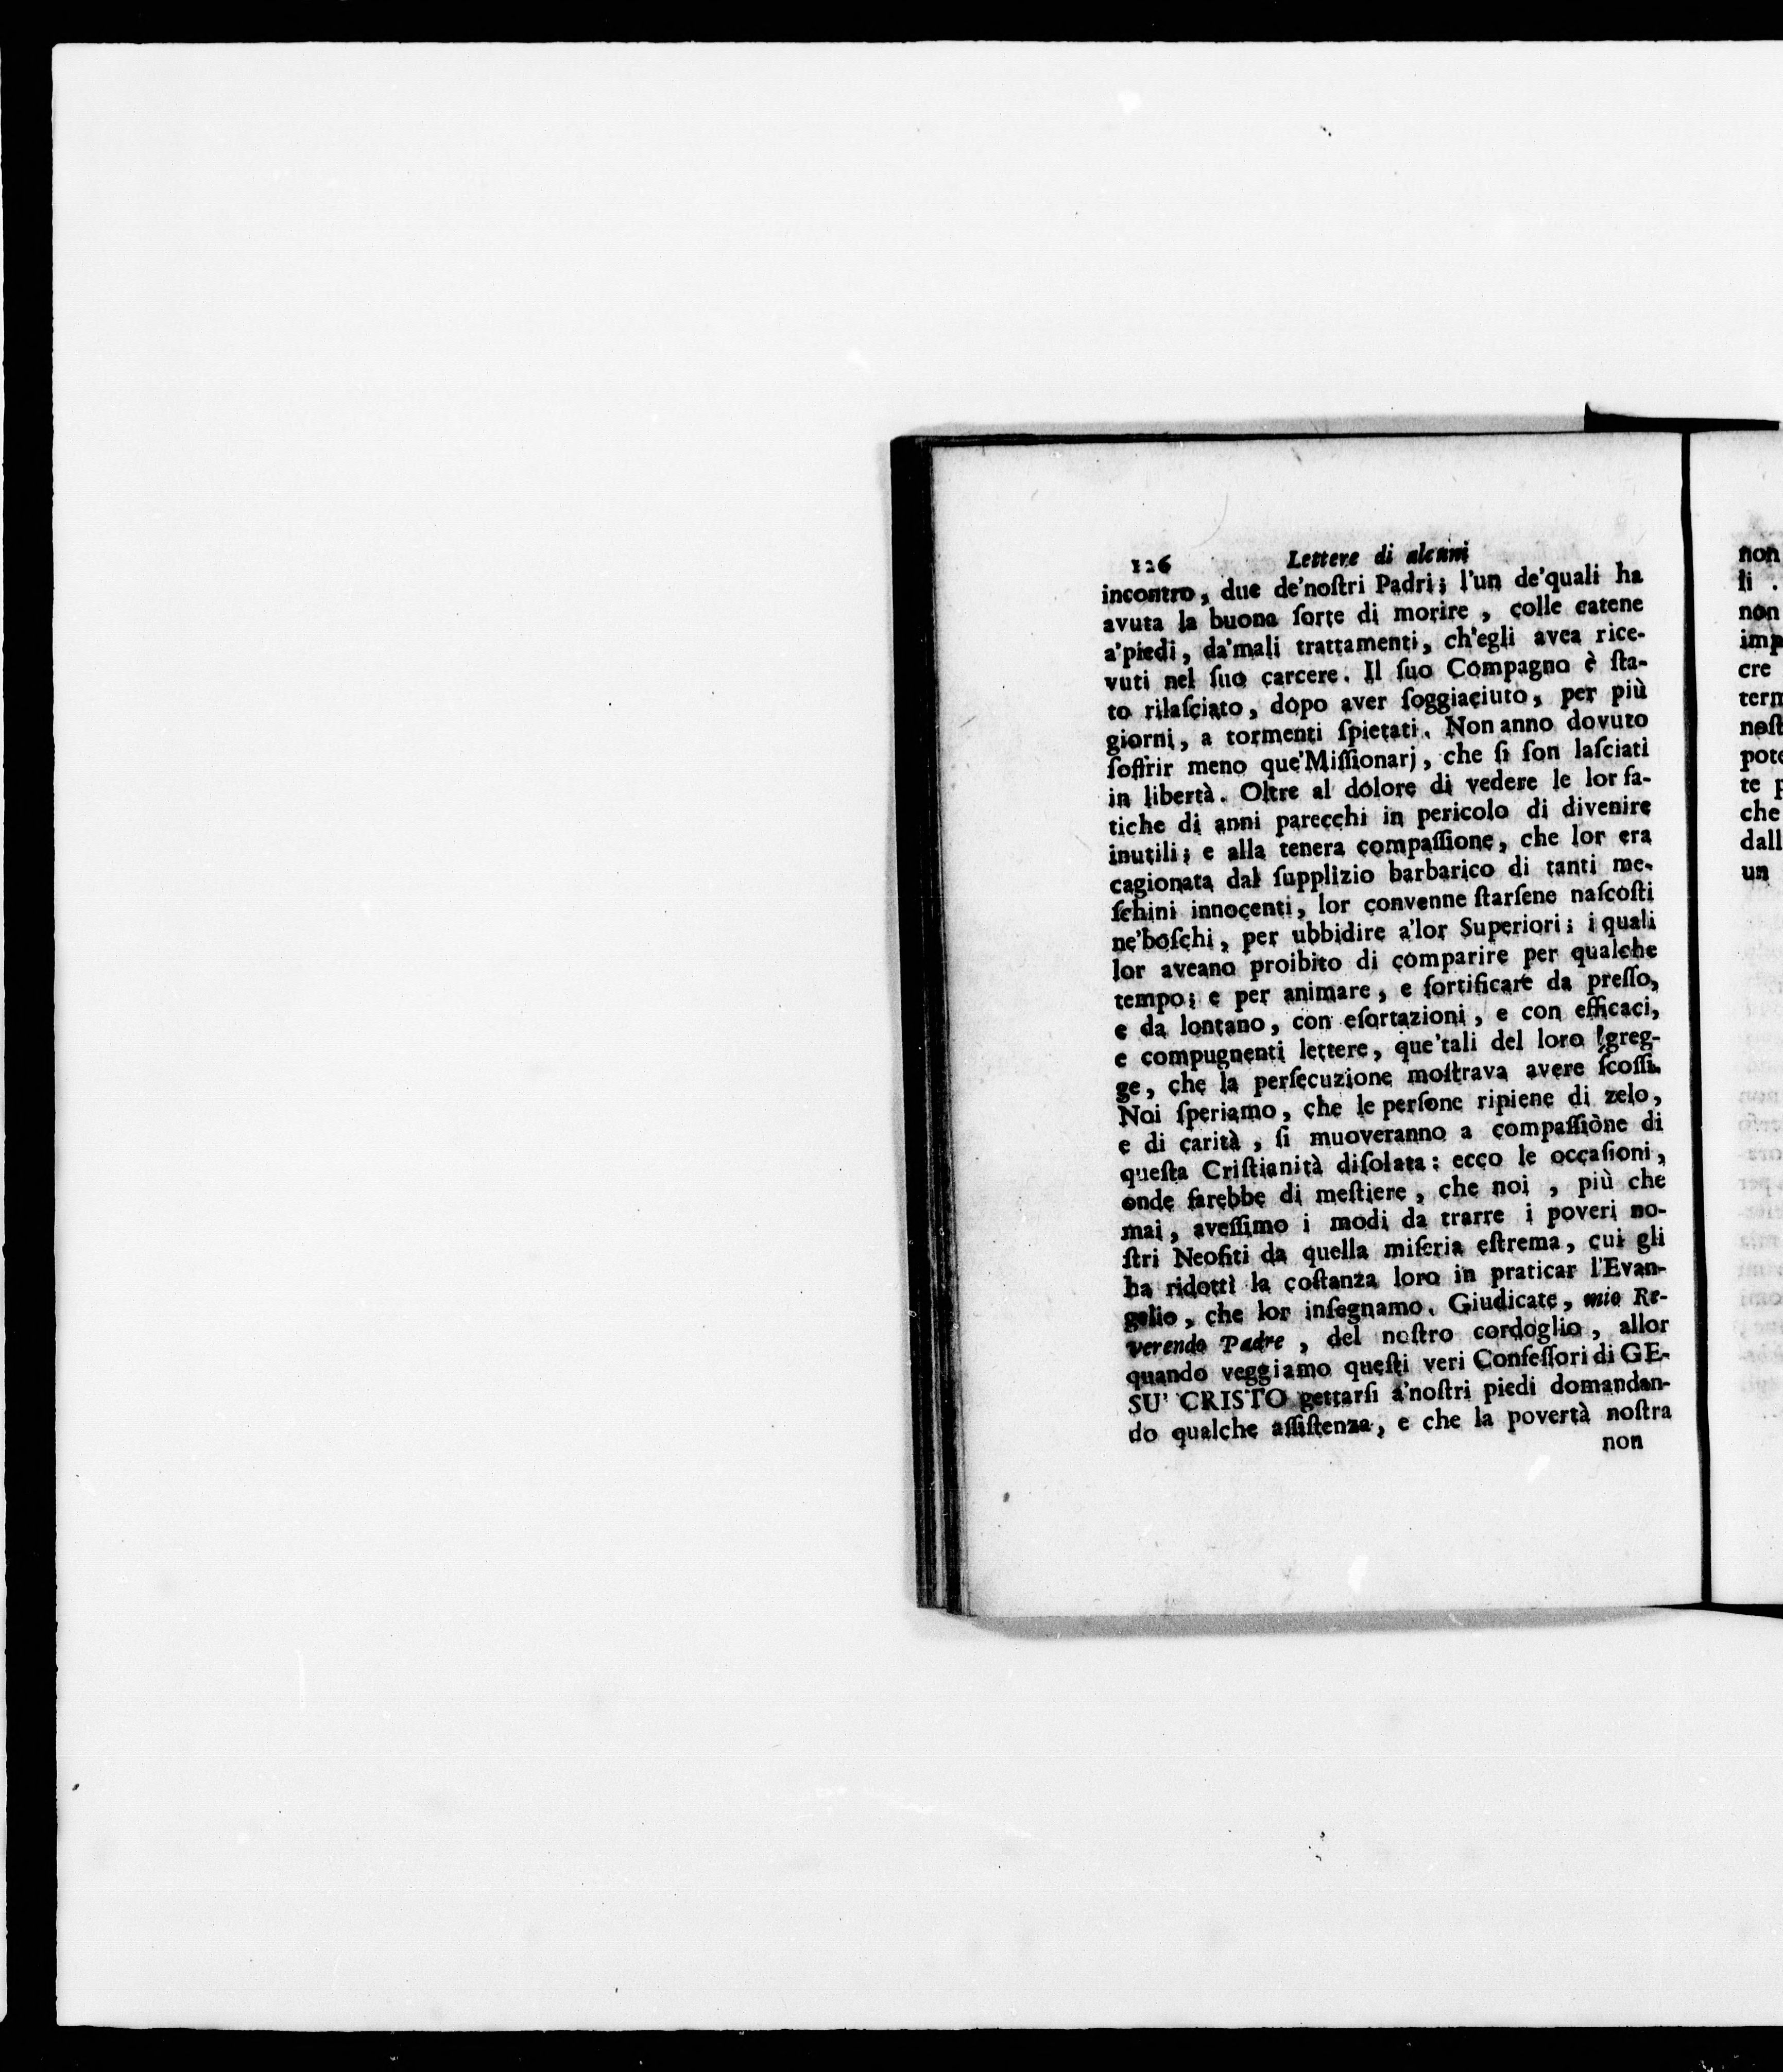 126 Lettere di alcuni
incontro, due de'noſtri Padri; l'un de'quali ha
avuta la buona ſorte di morire, colle catene
a'piedi, da'mali trattamenti, ch'egli avea rice-
vuti nel ſuo carcere. Il ſuo Compagno è ſta-
to rilaſciato, dopo aver ſoggiaciuto, per più
giorni, a tormenti ſpietati. Non anno dovuto
ſoffrir meno que'Miſſionarj, che ſi ſon laſciati
in libertà. Oltre al dolore di vedere le lor fa-
tiche di anni parecchi in pericolo di divenire
inutili; e alla tenera compaſſione, che lor era
cagionata dal ſupplizio barbarico di tanti me-
ſchini innocenti, lor convenne ſtarſene naſcoſti
ne'boſchi, per ubbidire a'lor Superiori; i quali
lor aveano proibito di comparire per qualche
tempo; e per animare, e fortificare da preſſo,
e da lontano, con eſortazioni, e con efficaci,
e compugnenti lettere, que'tali del loro greg-
ge, che la perſecuzione moſtrava avere ſcoſſi.
Noi ſperiamo, che le perſone ripiene di zelo,
e di carità, ſi muoveranno a compaſſiòne di
queſta Criſtianità diſolata: ecco le occaſioni,
onde farebbe di meſtiere, che noi, più che
mai, aveſſimo i modi da trarre i poveri no-
ſtri Neofiti da quella miſeria eſtrema, cui gli
ha ridotti la coſtanza loro in praticar l'Evan-
gelio, che lor inſegnamo. Giudicate, mio Re-
verendo Padre, del noſtro cordoglio, allor
quando veggiamo queſti veri Confeſſori di GE-
SU' CRISTO gettarſi a'noſtri piedi domandan-
do qualche aſſiſtenza, e che la povertà noſtra
non
non
li .
non
imp
cre
term
noſt
pote
te p
che
dall
un